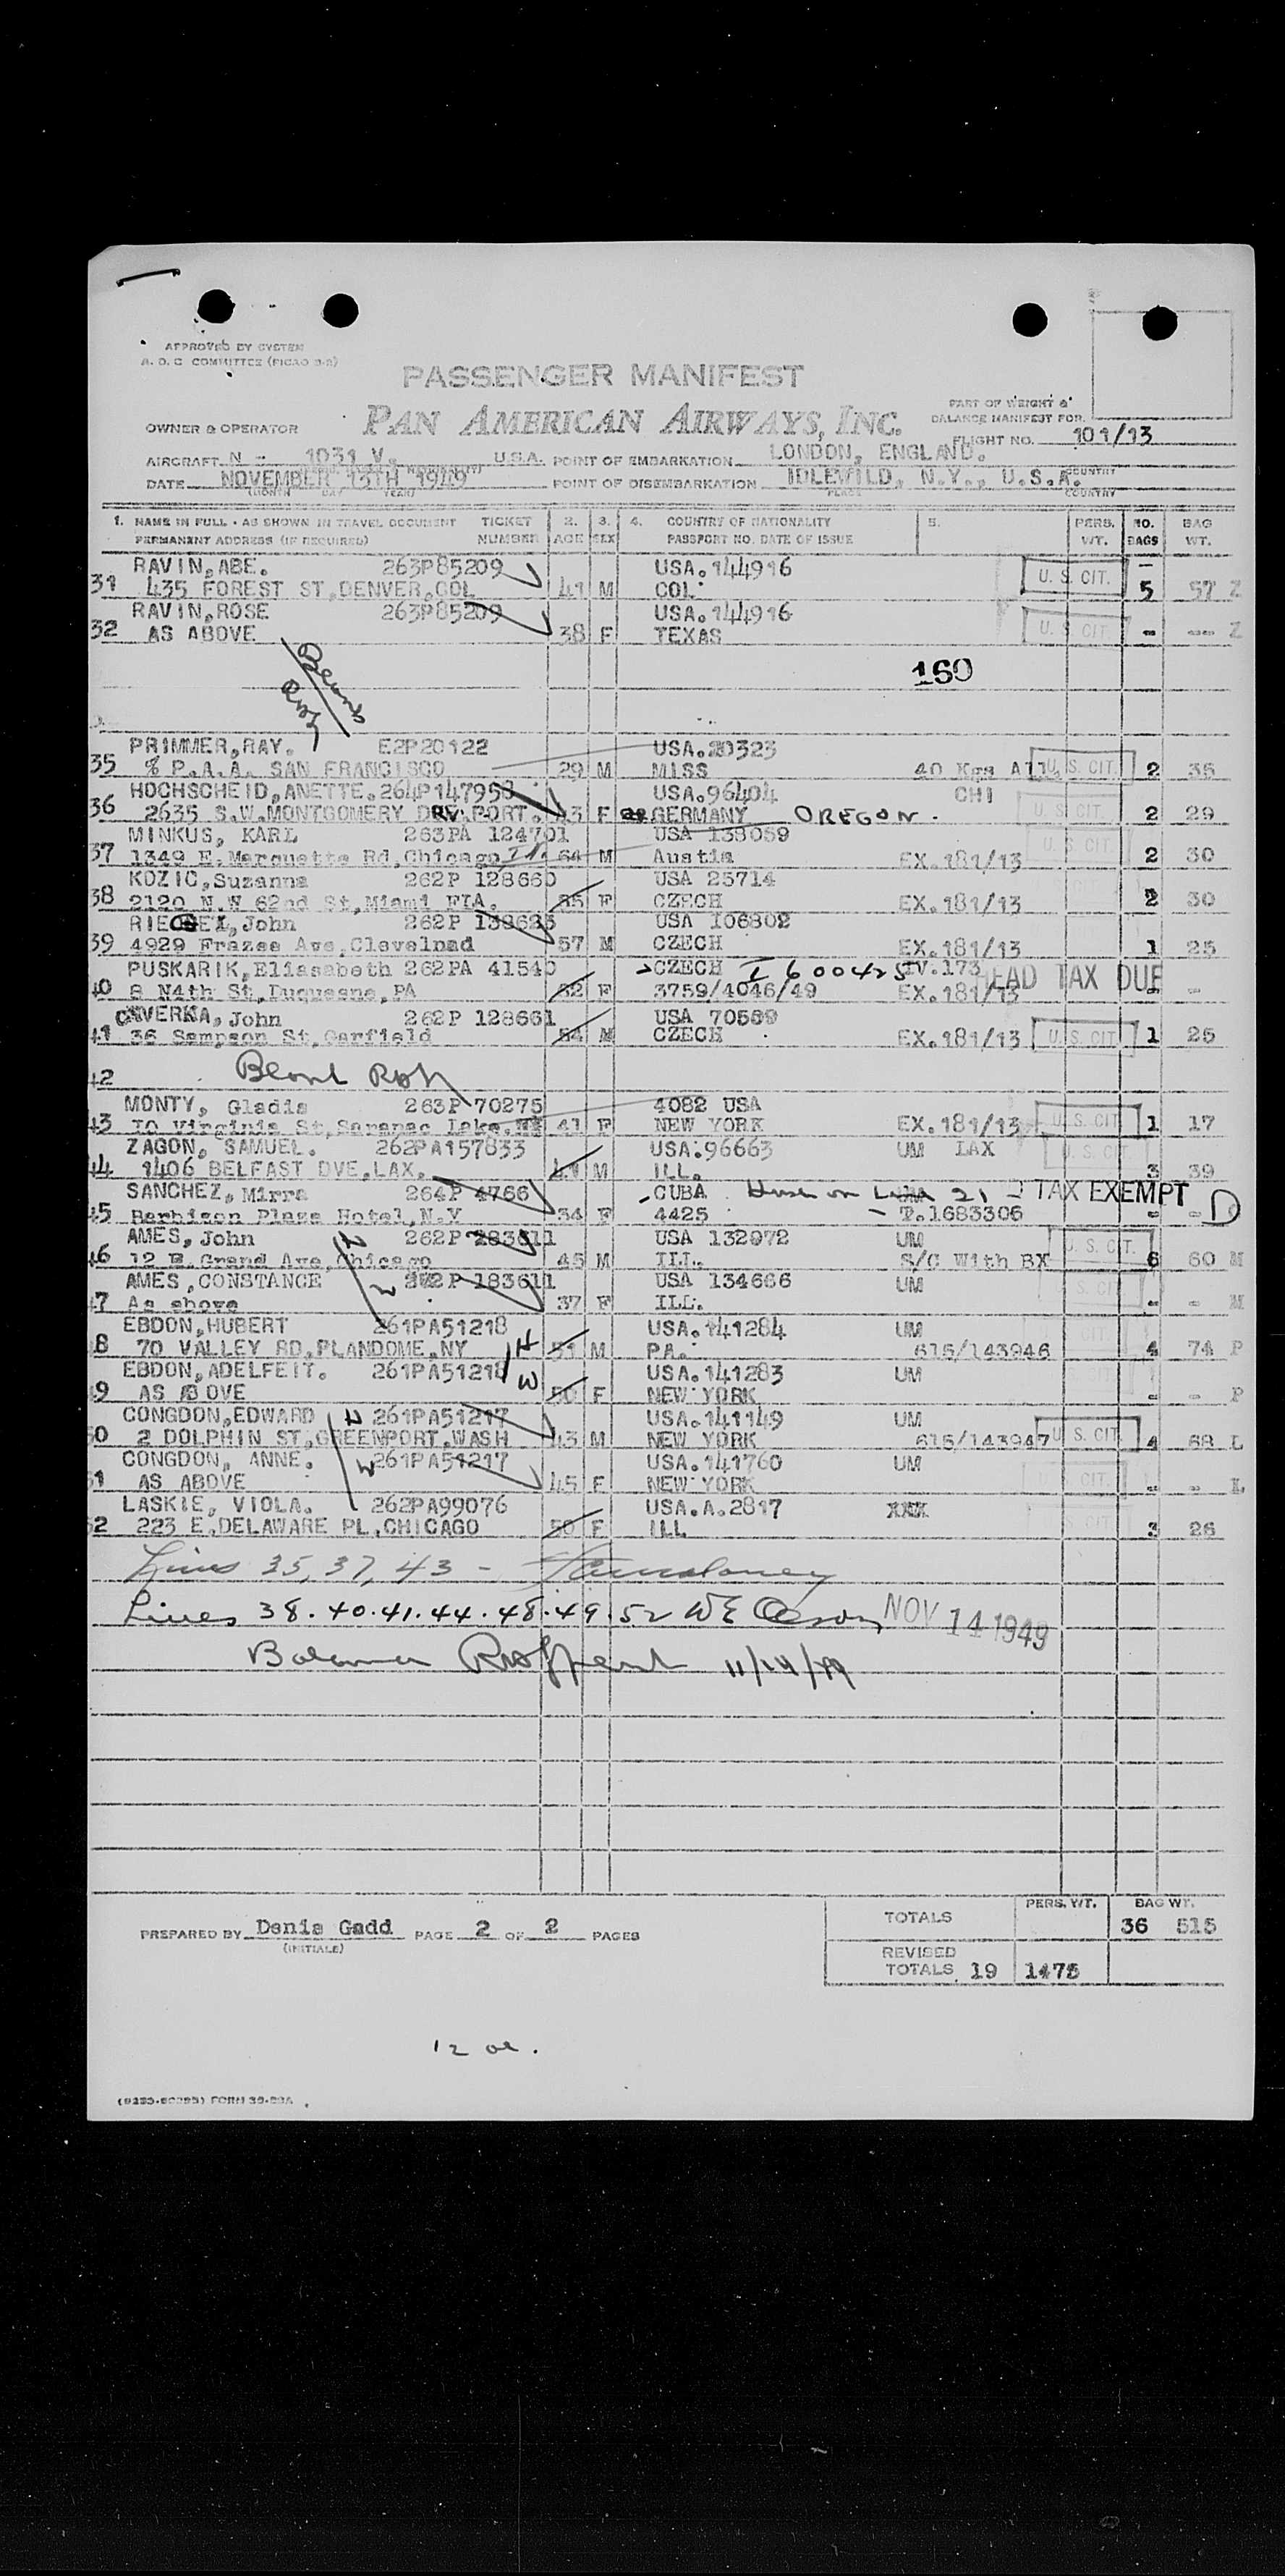 APPROVED BY SYSTEM
A. O. C COMMITTEE (FICAO 3-2)
PASSENGER MANIFEST
PAN AMERICAN AIRWAYS, INC.
PART OF WEIGHT &
BALANCE MANIFEST FOR
OWNER & OPERATOR
FLIGHT NO. 101/13
AIRCRAFT N - 1031 V. U.S.A. POINT OF EMBARKATION LONDON, ENGLAND.
DATE NOVEMBER 13TH 1949 POINT OF DISEMBARKATION IDLEWILD, N.Y., U.S.A.
(MONTH DAY YEAR) PLACE COUNTRY
1. NAME IN FULL - AS SHOWN IN TRAVEL DOCUMENT TICKET 2. 3. 4. COUNTRY OF NATIONALITY 5. PERS. NO. BAG
PERMANENT ADDRESS (IF REQUIRED) NUMBER AGE SEX PASSPORT NO. DATE OF ISSUE WT. BAGS WT.
RAVIN, ABE. 263P85209 USA.144916
31 435 FOREST ST, DENVER, COL 41 M COL. U. S. CIT. 5 57 Z
RAVIN, ROSE 263P85209 USA.144916
32 AS ABOVE 38 F TEXAS U. S. CIT. - -- Z
160
PRIMMER, RAY. E2P20122 USA.20323
35 % P.A.A. SAN FRANCISCO 29 M MISS 40 Kgs All U. S. CIT. 2 35
HOCHSCHEID, ANETTE. 264P147958 USA.96404 CHI
36 2635 S.W. MONTGOMERY DRV. PORT. 43 F GERMANY OREGON. U. S. CIT. 2 29
MINKUS, KARL 263PA 124701 USA 138059
37 1349 E. Marquette Rd, Chicago Ill. 64 M Austia EX.181/13 U. S. CIT. 2 30
KOZIC, Suzanna 262P 128660 USA 25714
38 2120 N.W 62nd St, Miami FIA. 55 F CZECH EX.181/13 2 30
John 262P 138623 USA 106802
39 4929 Frazee Ave, Clevelnad 57 M CZECH EX.181/13 1 25
PUSKARIK, Eliasabeth 262PA 41540 CZECH I 600425 IV.173 HEAD TAX DUE
40 8 N4th St, Duquesne, PA 62 F 3759/4046/49 EX.181/13 - -
CSVERKA, John 262P 128661 USA 70569
41 36 Sampson St, Garfield 54 M CZECH EX.181/13 U. S. CIT. 1 25
42
MONTY, Gladis 263P 70275 4082 USA
43 IO Virginia St, Saranac Lake, NY 41 F NEW YORK EX.181/13 U. S. CIT. 1 17
ZAGON, SAMUEL. 262PA157833 USA.96663 UM LAX
44 1406 BELFAST DVE, LAX. M ILL. U. S. CIT. 3 39
SANCHEZ, Mirra 264P 4766 CUBA TAX EXEMPT
45 Barbison Plaza Hotel, N.Y 34 F 4425 - T.1683306 - - D
AMES, John 262P 283611 USA 132972 UM
46 12 E. Grand Ave, Chicago 45 M ILL. S/C With BX U. S. CIT. 6 60 M
AMES, CONSTANCE 262P 183611 USA 134666 UM
47 As above 37 F ILL. U. S. CIT. - - M
EBDON, HUBERT 261PA51218 USA.141284 UM
48 70 VALLEY RD, PLANDOME, NY H 51 M PA. 615/143946 CIT. 4 74 P
EBDON, ADELFEIT. 261PA51218 W USA.141283 UM
49 AS ABOVE 50 F NEW YORK - - P
CONGDON, EDWARD H 261PA51217 USA.141149 UM
50 2 DOLPHIN ST, GREENPORT, WASH 43 M NEW YORK 615/143947 U. S. CIT. 4 68 L
CONGDON, ANNE. W 261PA51217 USA.141760 UM
51 AS ABOVE 45 F NEW YORK U. S. CIT. - - L
LASKIE, VIOLA. 262PA99076 USA.A.2817 XXX
52 223 E. DELAWARE PL, CHICAGO 50 F ILL 3 26
Lines 35, 37, 43 -
Lines 38. 40. 41. 44. 48. 49. 52 NOV 14 1949
Balance 11/14/49
PERS. WT. BAG WT.
TOTALS 36 515
PREPARED BY Denis Gadd PAGE 2 OF 2 PAGES
(INITIALS)
REVISED
TOTALS 19 1475
FORM 39-